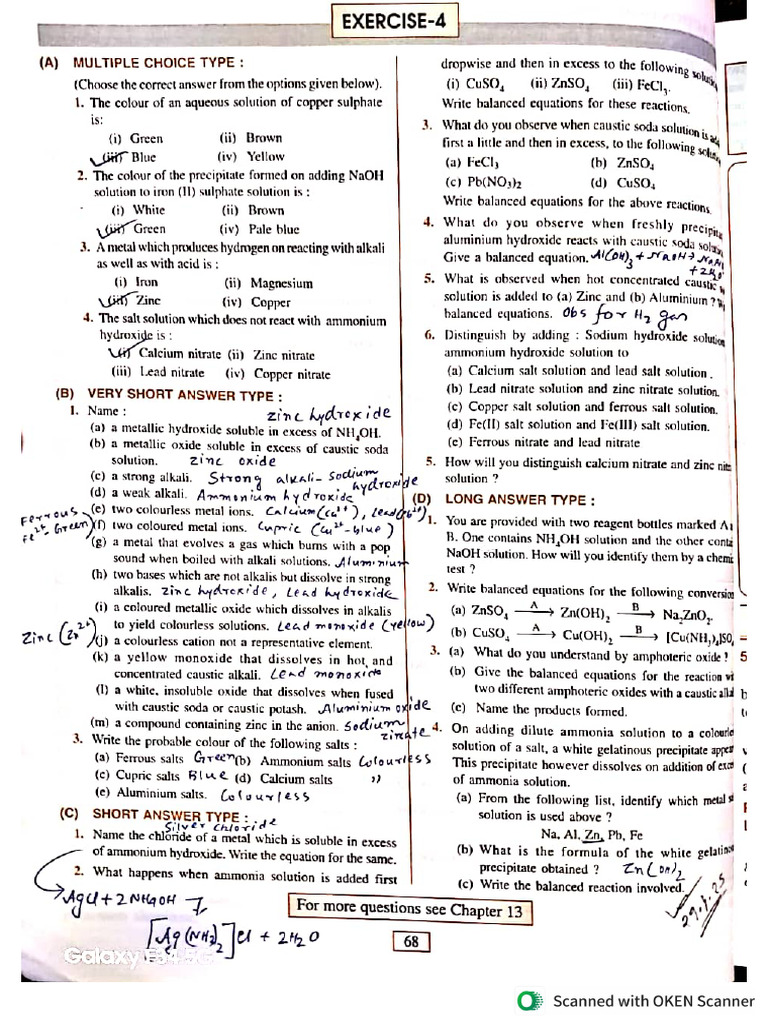 EXERCISE-4
(A) MULTIPLE CHOICE TYPE :
(Choose the correct answer from the options given below).
1. The colour of an aqueous solution of copper sulphate
is:
(i) Green (ii) Brown
(iii) Blue (iv) Yellow
2. The colour of the precipitate formed on adding NaOH
solution to iron (II) sulphate solution is :
(i) White (ii) Brown
(iii) Green (iv) Pale blue
3. A metal which produces hydrogen on reacting with alkali
as well as with acid is :
(i) Iron (ii) Magnesium
(iii) Zinc (iv) Copper
4. The salt solution which does not react with ammonium
hydroxide is :
(i) Calcium nitrate (ii) Zinc nitrate
(iii) Lead nitrate (iv) Copper nitrate
(B) VERY SHORT ANSWER TYPE :
1. Name : zinc hydroxide
(a) a metallic hydroxide soluble in excess of NH₄OH.
(b) a metallic oxide soluble in excess of caustic soda
solution. zinc oxide
(c) a strong alkali. Strong alkali- Sodium hydroxide
(d) a weak alkali. Ammonium hydroxide
(e) two colourless metal ions. Calcium(Ca²⁺), Lead(Pb²⁺)
Ferrous Fe²⁺ Green) (f) two coloured metal ions. Cupric (Cu²⁺-blue)
(g) a metal that evolves a gas which burns with a pop
sound when boiled with alkali solutions. Aluminium
(h) two bases which are not alkalis but dissolve in strong
alkalis. zinc hydroxide, Lead hydroxide
(i) a coloured metallic oxide which dissolves in alkalis
to yield colourless solutions. Lead monoxide (yellow)
Zinc (Zn²⁺) (j) a colourless cation not a representative element.
(k) a yellow monoxide that dissolves in hot and
concentrated caustic alkali. Lead monoxide
(l) a white, insoluble oxide that dissolves when fused
with caustic soda or caustic potash. Aluminium oxide
(m) a compound containing zinc in the anion. Sodium zincate
3. Write the probable colour of the following salts :
(a) Ferrous salts Green (b) Ammonium salts Colourless
(c) Cupric salts Blue (d) Calcium salts "
(e) Aluminium salts. Colourless
(C) SHORT ANSWER TYPE :
Silver chloride
1. Name the chloride of a metal which is soluble in excess
of ammonium hydroxide. Write the equation for the same.
2. What happens when ammonia solution is added first
AgCl + 2NH4OH →
[Ag(NH₃)₂]Cl + 2H₂O
dropwise and then in excess to the following
(i) CuSO₄ (ii) ZnSO₄ (iii) FeCl₃.
Write balanced equations for these reactions.
3. What do you observe when caustic soda solution is
first a little and then in excess, to the following
(a) FeCl₃ (b) ZnSO₄
(c) Pb(NO₃)₂ (d) CuSO₄
Write balanced equations for the above reactions.
4. What do you observe when freshly
aluminium hydroxide reacts with caustic soda
Give a balanced equation. Al(OH)₃ + NaOH →
+ 2H₂O
5. What is observed when hot concentrated caustic
solution is added to (a) Zinc and (b) Aluminium ?
balanced equations. Obs for H₂ gas
6. Distinguish by adding : Sodium hydroxide solution
ammonium hydroxide solution to
(a) Calcium salt solution and lead salt solution.
(b) Lead nitrate solution and zinc nitrate solution.
(c) Copper salt solution and ferrous salt solution.
(d) Fe(II) salt solution and Fe(III) salt solution.
(e) Ferrous nitrate and lead nitrate
5. How will you distinguish calcium nitrate and zinc
solution ?
(D) LONG ANSWER TYPE :
1. You are provided with two reagent bottles marked A
B. One contains NH₄OH solution and the other
NaOH solution. How will you identify them by a
test ?
2. Write balanced equations for the following
(a) ZnSO₄ —A→ Zn(OH)₂ —B→ Na₂ZnO₂.
(b) CuSO₄ —A→ Cu(OH)₂ —B→ [Cu(NH₃)₄]SO₄
3. (a) What do you understand by amphoteric oxide ?
(b) Give the balanced equations for the reaction
two different amphoteric oxides with a caustic
(c) Name the products formed.
4. On adding dilute ammonia solution to a
solution of a salt, a white gelatinous precipitate
This precipitate however dissolves on addition of
of ammonia solution.
(a) From the following list, identify which metal
solution is used above ?
Na, Al, Zn, Pb, Fe
(b) What is the formula of the white
precipitate obtained ? Zn(OH)₂
(c) Write the balanced reaction involved.
For more questions see Chapter 13
68
Galaxy
Scanned with OKEN Scanner